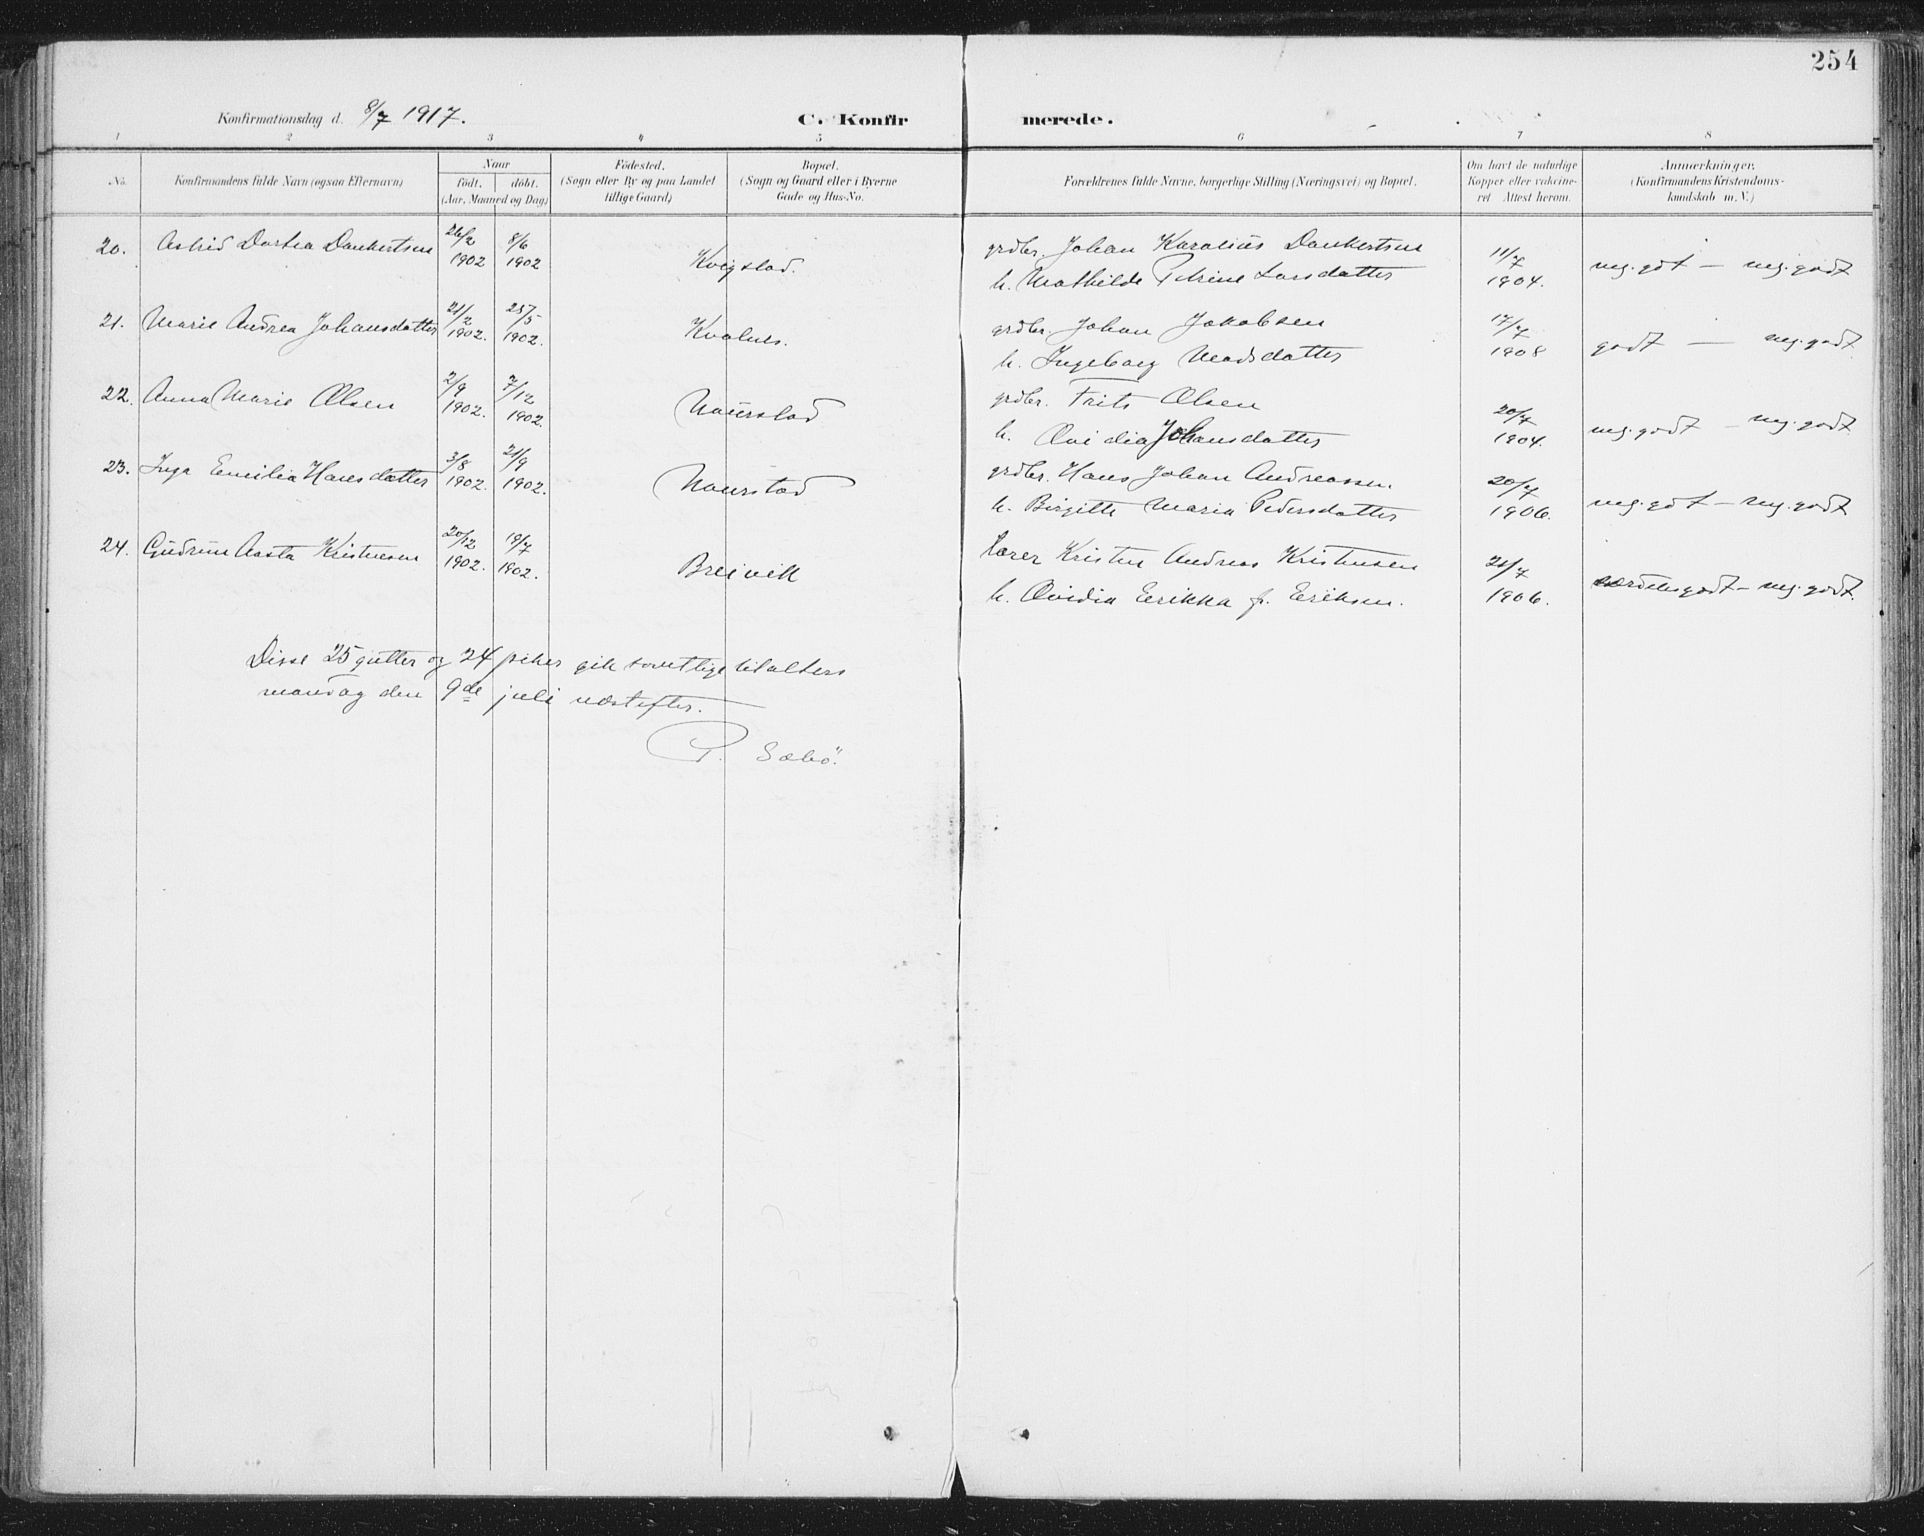 254
Konfirmationsdag d. 8/7 1917.
C. Konfirmerede.
1 2 3 4 5 6 7 8
No.
Konfirmandens fulde Navn (ogsaa Efternavn)
Naar
født. døbt.
(Aar, Maaned og Dag)
Fødested.
(Sogn eller By og paa Landet
tillige Gaard)
Bopæl.
(Sogn og Gaard eller i Byerne
Gade og Hus-No.
Forældrenes fulde Navne, borgerlige Stilling (Næringsvei) og Bopæl.
Om havt de naturlige
Kopper eller vaksine-
ret. Attest herom.
Anmærkninger.
(Konfirmandens Kristendoms-
kundskab m. V.)
20. Astrid Dortea Dankertsen 26/2 1902 8/6 1902 Kvigstad. grdbr. Johan Karolius Dankertsen 11/7 1904. meg. gdt — meg. godt
h. Mathilde Petrine Larsdatter
21. Marie Andrea Johansdatter 21/2 1902. 25/5 1902. Kvalnes. grdbr. Johan Jakobsen 17/7 1908 godt — meg. godt.
h. Ingeborg Madsdatter
22. Anna Marie Olsen 2/9 1902. 7/12 1902. Naurstad grdbr. Frits Olsen 20/7 1904. meg. godt — meg. godt.
h. Ovidia Johansdatter
23. Inga Emilia Hansdatter 3/8 1902. 21/9 1902. Naurstad grdbr. Hans Johan Andreassen 20/7 1906. meg. gdt — meg. godt
h. Birgitte Maria Pedersdatter
24. Gudrun Aasta Kristensen 1902. 19/7 1902. Breivik lærer Kristen Andreas Kristensen 21/7 1906. særdeles godt — meg. godt.
h. Ovidia Erikka f. Eriksen.
Disse 25 gutter og 24 piker gik samtlige til alters
mandag den 9de juli næstefter.
P. Sæbö.